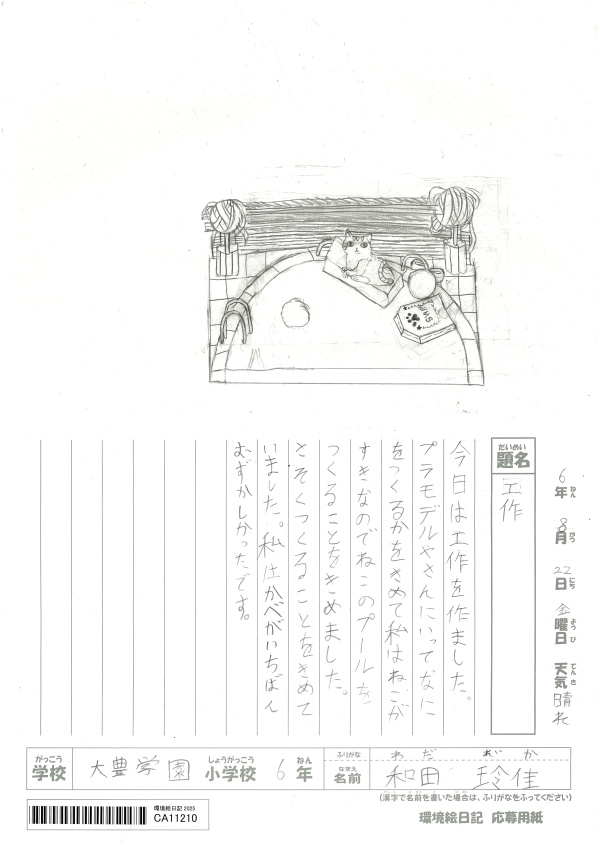 6年ねん 8月がつ 22日にち 金曜日ようび 天気てんき 晴れ
題名だいめい
工作
今日は工作を作ました。
プラモデルやさんにいってなに
をつくるかをきめて私はねこが
すきなのでねこのプールを
つくることをきめました。
さそくつくることをきめて
いました。私はかべがいちばん
むずかしかったです。
がっこう しょうがっこう ねん ふりがな わだ れいか
学校 大豊学園 小学校 6年 なまえ 名前 和田 玲佳
(漢字で名前を書いた場合は、ふりがなをふってください)
環境絵日記 2025
CA11210
環境絵日記 応募用紙